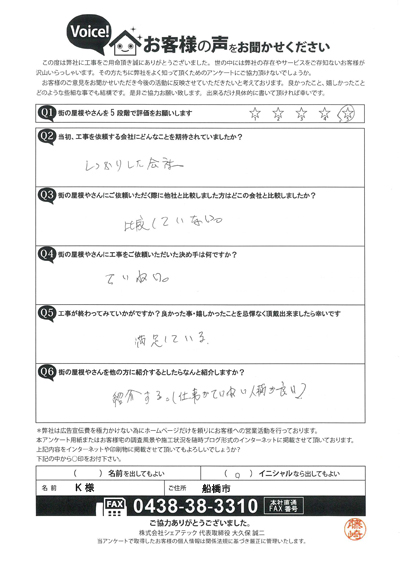 Voice!
お客様の声をお聞かせください
この度は弊社に工事をご用命頂き誠にありがとうございました。世の中には弊社の存在やサービスをご存知ないお客様が
沢山いらっしゃいます。その方たちに弊社をよく知って頂くためのアンケートにご協力頂けないでしょうか。
お客様のご意見をお聞かせいただき今後の活動に反映させていただきたいと考えております。良かったこと、嬉しかったこと
どのような些細な事でも結構です。是非ご協力お願い致します。出来るだけ具体的に書いて頂ければ幸いです。
Q1 街の屋根やさんを5段階で評価をお願いします ☆ ☆ ☆ ☆ ☆
Q2 当初、工事を依頼する会社にどんなことを期待されていましたか?
しっかりした会社
Q3 街の屋根やさんにご依頼いただく際に他社と比較しました方はどこの会社と比較しましたか?
比較していない。
Q4 街の屋根やさんに工事をご依頼いただいた決め手は何ですか?
ていねい。
Q5 工事が終わってみていかがですか?良かった事・嬉しかったことを忌憚なく頂戴出来ましたら幸いです
満足している。
Q6 街の屋根やさんを他の方に紹介するとしたらなんと紹介しますか?
紹介する。(仕事がていねい 人柄が良い)
*弊社は広告宣伝費を極力かけない為にホームページだけを頼りにお客様への営業活動を行っております。
本アンケート用紙またはお客様宅の調査風景や施工状況を随時ブログ形式のインターネットに掲載させて頂いております。
上記内容をインターネットや印刷物に掲載させて頂いてもよろしいでしょうか?
下記の中から○印をお付け下さい。
( )名前を出してもよい ( ○ )イニシャルなら出してもよい
名前 K 様 ご住所 船橋市
FAX 0438-38-3310 本社直通 FAX番号
ご協力ありがとうございました。
株式会社シェアテック 代表取締役 大久保 誠二
当アンケートで取得したお客様の個人情報は関係法規に基づき厳正に管理いたします。